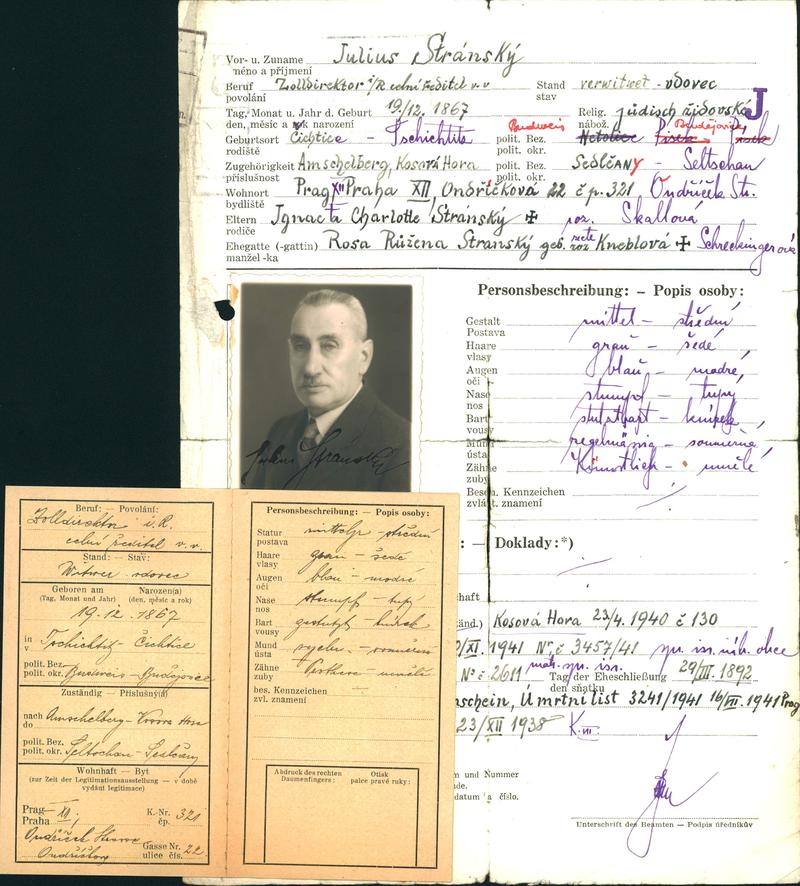 Vor- u. Zuname Julius Stránský
jméno a příjmení
Beruf Zolldirektor i/R celní ředitel v. v. Stand verwitwet - vdovec
povolání stav
Tag, Monat u. Jahr d. Geburt 19./12. 1867 Relig. jüdisch židovské J
den, měsíc a rok narození nábož.
Budweis Budějovice
Geburtsort Čichtice - Tschichtitz polit. Bez. Netolice Písek Pisek
rodiště polit. okr.
Zugehörigkeit Amschelberg, Kosová Hora polit. Bez. Sedlčany - Seltschan
příslušnost polit. okr.
Wohnort Prag XII Praha XII, Ondříčkova 22 č p. 321 Ondříček Str.
bydliště
Eltern Ignac a Charlotte Stránský roz. Skallová
rodiče
Ehegatte (-gattin) Rosa Růžena Stranský geb. roz Kneblová Schreckingerová
manžel -ka
Personsbeschreibung: – Popis osoby:
Gestalt mittel - střední
Postava
Haare grau - šedé
vlasy
Augen blau - modré
oči
Nase stumpf - tupý
nos
Bart
vousy
Mund regelmässig - souměrná
ústa
Zähne Künstlich - umělé
zuby
Besch. Kennzeichen
zvlášt. znamení
Julius Stránský
: – Doklady:*)
Kosová Hora 23/4. 1940 č 130
/XI. 1941 Nr. č 3457/41 obce
№ č 2611 Tag der Eheschließung 29/III. 1892
den sňatku
nschein, Úmrtní list 3241/1941 16/VII. 1941 Prag
23/XII 1938 K.
m und Nummer
datum a číslo.
Unterschrift des Beamten – Podpis úředníkův
Beruf: – Povolání:
Zolldirektor i. R.
celní ředitel v. v.
Stand: – Stav:
Witwer vdovec
Geboren am Narozen(a)
(Tag, Monat und Jahr) (den, měsíc a rok)
19. 12. 1867
in Tschichtitz - Čichtice
v
polit. Bez.
polit. okr. Budweis - Budějovice
Zuständig – Příslušný(á)
nach Amschelberg - Kosova Hora
do
polit. Bez.
polit. okr. Seltschan - Sedlčany
Wohnhaft – Byt
(zur Zeit der Legitimationsausstellung – v době
vydání legitimace)
Prag XII, K.-Nr. 321
Praha čp.
Ondříček Gasse Nr. 22
ulice čís.
Personsbeschreibung: – Popis osoby:
Statur střední
postava
Haare grau - šedé
vlasy
Augen blau - modré
oči
Nase stumpf - tupý
nos
Bart gestutzt
vousy
Mund
ústa
Zähne umělé
zuby
bes. Kennzeichen
zvl. znamení
Abdruck des rechten Daumenfingers: Otisk palce pravé ruky: